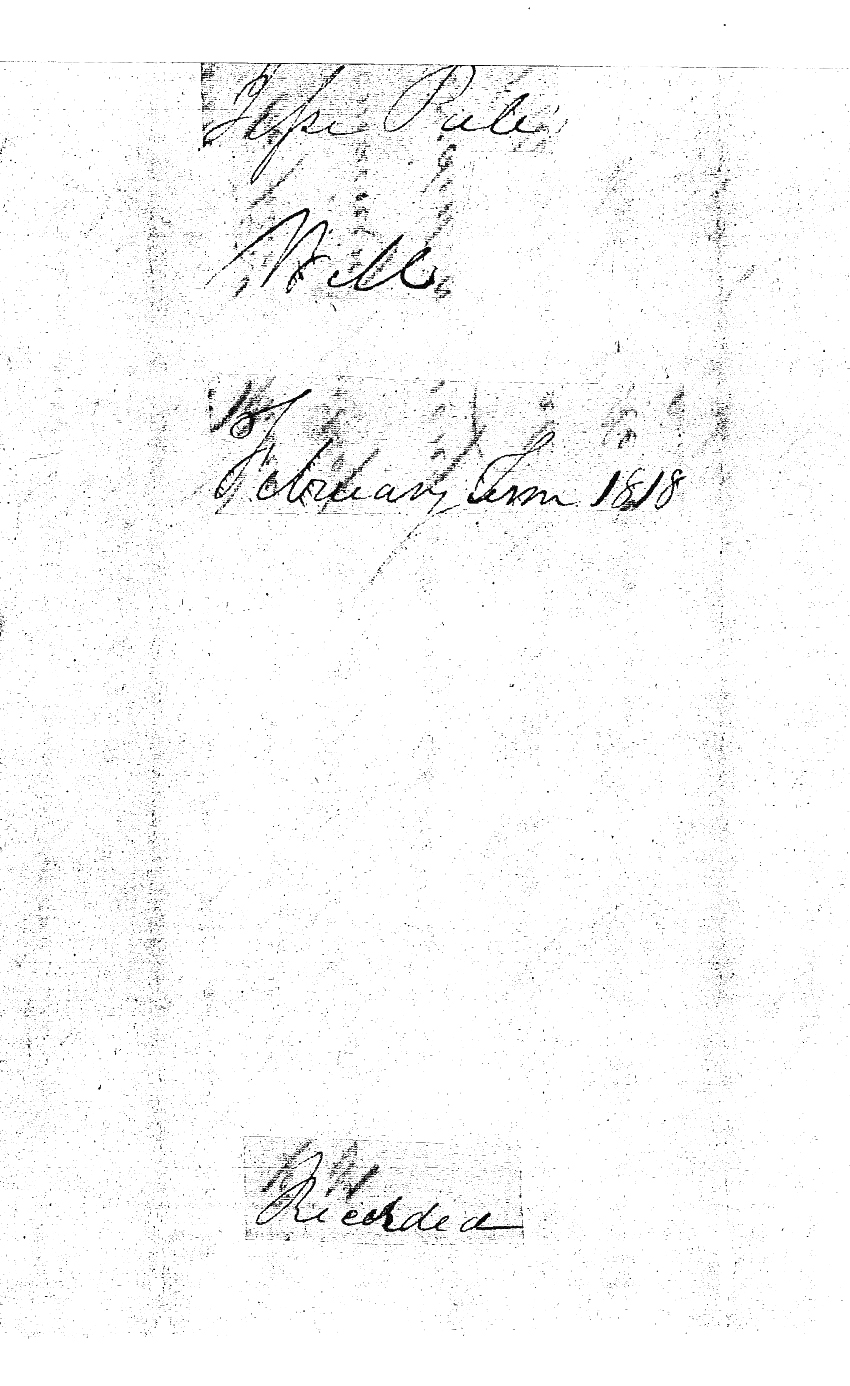 Jesse
Will
February Term 1818
Recorded